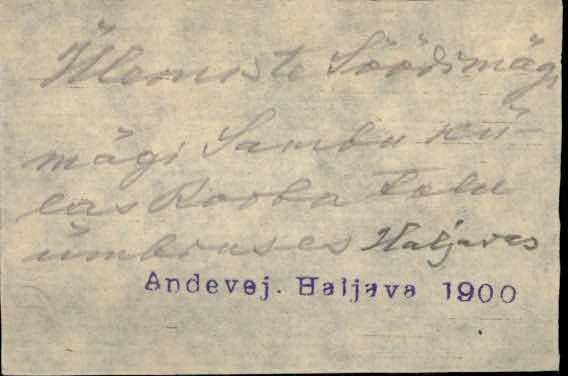 Ülemiste Söödimägi
mägi Sambu kü-
las Rooba talu
ümbruses Haljavas
Andevej. Haljava 1900